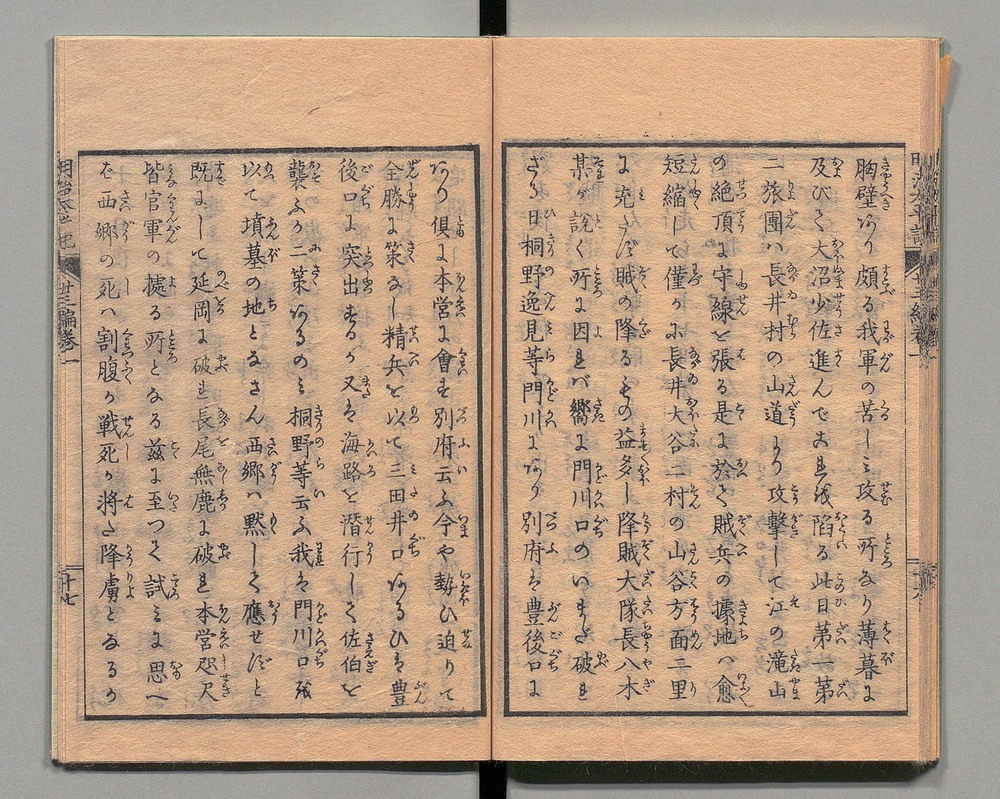 胸壁あり頗る我軍の苦しミ攻る所なり薄暮に
及びて大沼少佐進んで古を陥る此日第一第
二旅團ハ長井村の山道より攻撃して江の滝山
の絶頂に守線を張る是に於て賊兵の據地ハ愈
短縮して僅かに長井大谷二村の山谷方面二里
に充たず賊の降るもの益多し降賊大隊長八木
某が説く所に因れバ嚮に門川口のいまだ破れ
ざる日桐野逸見等門川にあり別府は豊後口に
あり倶に本営に會す別府云ふ今や勢ひ迫りて
全勝に策なし精兵を以て三田井口あるひは豊
後口に突出するか又は海路を潜行して佐伯を
襲ふか二策あるのミ桐野等云ふ我は門川口を
以て墳墓の地となさん西郷ハ黙して應せずと
既にして延岡に破れ長尾無鹿に破れ本営咫尺
皆官軍の據る所となる茲に至つて試ミに思へ
ば西郷の死ハ割腹か戦死か将た降虜となるか
明治太平記
廿三編巻一
十七